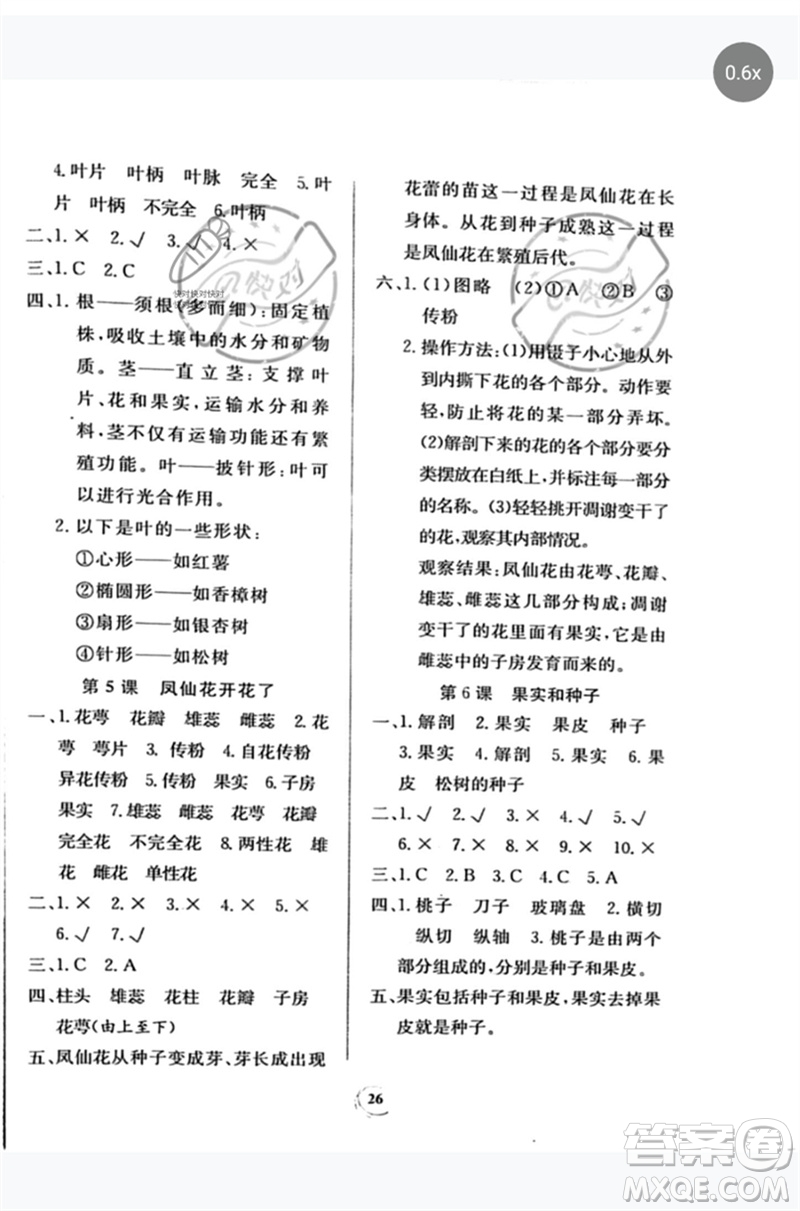 0.6x
4.叶片 叶柄 叶脉 完全 5.叶
片 叶柄 不完全 6.叶柄
二、1.× 2.√ 3.√ 4.×
三、1.C 2.C
四、1.根——须根(多而细):固定植
株,吸收土壤中的水分和矿物
质。茎——直立茎:支撑叶
片、花和果实,运输水分和养
料,茎不仅有运输功能还有繁
殖功能。叶——披针形:叶可
以进行光合作用。
2.以下是叶的一些形状:
①心形——如红薯
②椭圆形——如香樟树
③扇形——如银杏树
④针形——如松树
第5课 凤仙花开花了
一、1.花萼 花瓣 雄蕊 雌蕊 2.花
萼 萼片 3.传粉 4.自花传粉
异花传粉 5.传粉 果实 6.子房
果实 7.雄蕊 雌蕊 花萼 花瓣
完全花 不完全花 8.两性花 雄
花 雌花 单性花
二、1.× 2.× 3.× 4.× 5.×
6.√ 7.√
三、1.C 2.A
四、柱头 雄蕊 花柱 花瓣 子房
花萼(由上至下)
五、凤仙花从种子变成芽、芽长成出现
花蕾的苗这一过程是凤仙花在长
身体。从花到种子成熟这一过程
是凤仙花在繁殖后代。
六、1.(1)图略 (2)①A ②B ③
传粉
2.操作方法:(1)用镊子小心地从外
到内撕下花的各个部分。动作要
轻,防止将花的某一部分弄坏。
(2)解剖下来的花的各个部分要分
类摆放在白纸上,并标注每一部分
的名称。(3)轻轻挑开凋谢变干了
的花,观察其内部情况。
观察结果:凤仙花由花萼、花瓣、
雄蕊、雌蕊这几部分构成;凋谢
变干了的花里面有果实,它是由
雌蕊中的子房发育而来的。
第6课 果实和种子
一、1.解剖 2.果实 果皮 种子
3.果实 4.解剖 5.果实 6.果
皮 松树的种子
二、1.√ 2.√ 3.× 4.√ 5.√
6.× 7.× 8.× 9.√ 10.×
三、1.C 2.B 3.A 4.C 5.A
四、1.桃子 刀子 玻璃盘 2.横切
纵切 纵轴 3.桃子是由两个
部分组成的,分别是种子和果皮。
五、果实包括种子和果皮,果实去掉果
皮就是种子。
26
快对快对快对
答案卷
MXQE.COM